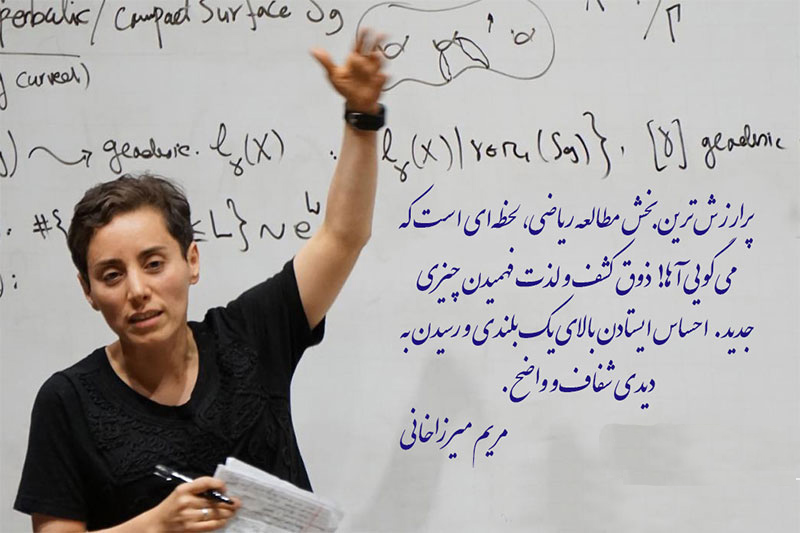 perbolic/ compact surface Sg
g curves)
g) ⤳ geodesic. ℓ_γ(X) : ℓ_γ(X) | γ∈π₁(Sg)}, [γ] geodesic
#{ ≤L} ~ e^L
پرارزش‌ترین بخش مطالعه ریاضی، لحظه‌ای است که
می‌گویی آها! ذوق کشف و لذت فهمیدن چیزی
جدید. احساس ایستادن بالای یک بلندی و رسیدن به
دیدی شفاف و واضح.
مریم میرزاخانی